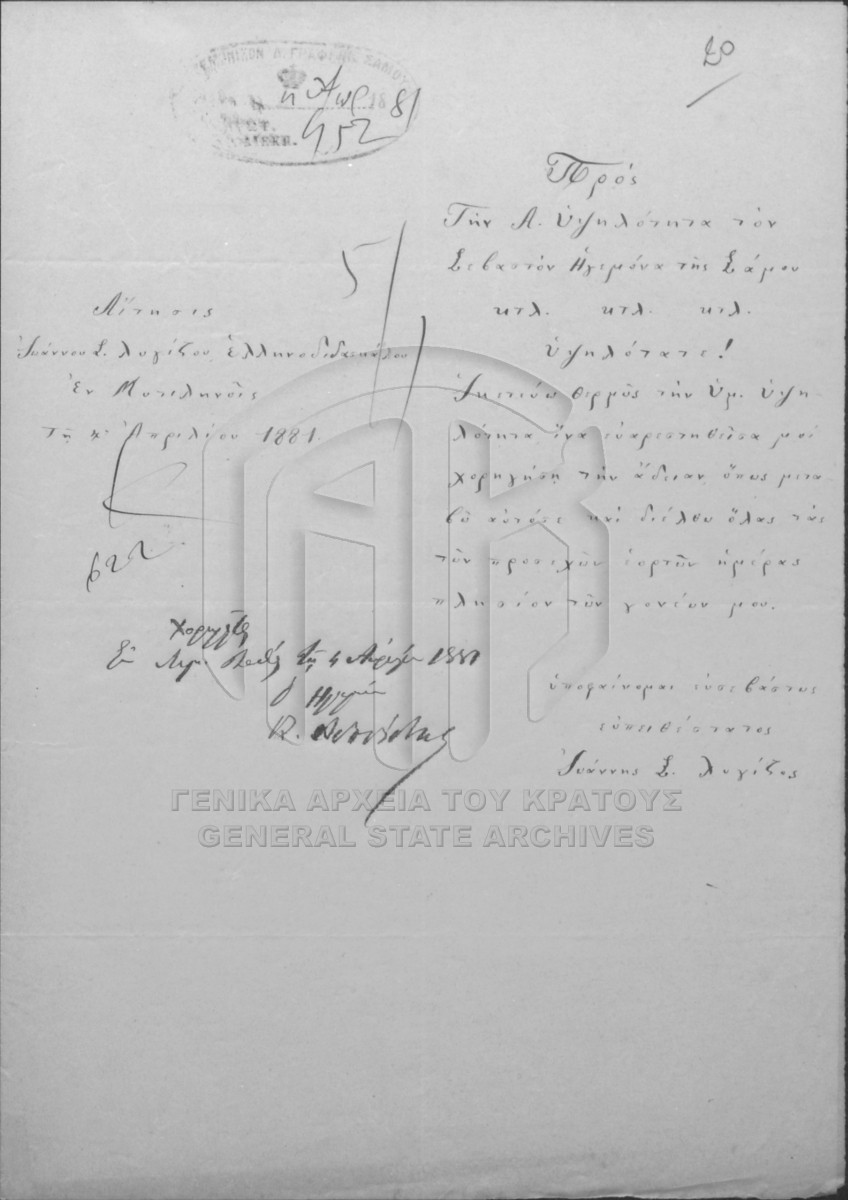 20
ΗΓΕΜΟΝΙΚΟΝ ΓΡΑΦΕΙΟΝ ΣΑΜΟΥ
4 Απρ 1881
ΠΡΩΤ.
ΔΙΕΚΠ. 952
Πρὸς
Τὴν Α. Ὑψηλότητα τὸν
Σεβαστὸν Ἡγεμόνα τῆς Σάμου
κτλ. κτλ. κτλ.
Ὑψηλότατε!
Ἱκετεύω θερμῶς τὴν Ὑμ. Ὑψη-
λότητα, ἵνα εὐαρεστηθεῖσα μοὶ
χορηγήσῃ τὴν ἄδειαν, ὅπως μετα
βῶ αὐτόσε καὶ διέλθω ὅλας τὰς
τῶν προσεχῶν ἑορτῶν ἡμέρας
πλησίον τῶν γονέων μου.
ὑποφαίνομαι εὐσεβάστως
εὐπειθέστατος
Ἰωάννης Σ. Λυγίζος
Αἴτησις
Ἰωάννου Σ. Λυγίζου, Ἑλληνοδιδασκάλου
Ἐν Μυτιληνοῖς
τῇ Ἀπριλίου 1881.
622
χορηγεῖται
Ἐν Λιμ. Βαθέος τῇ 4 Ἀπριλίου 1881
ὁ Ἡγεμὼν
Κ.
ΓΕΝΙΚΑ ΑΡΧΕΙΑ ΤΟΥ ΚΡΑΤΟΥΣ
GENERAL STATE ARCHIVES